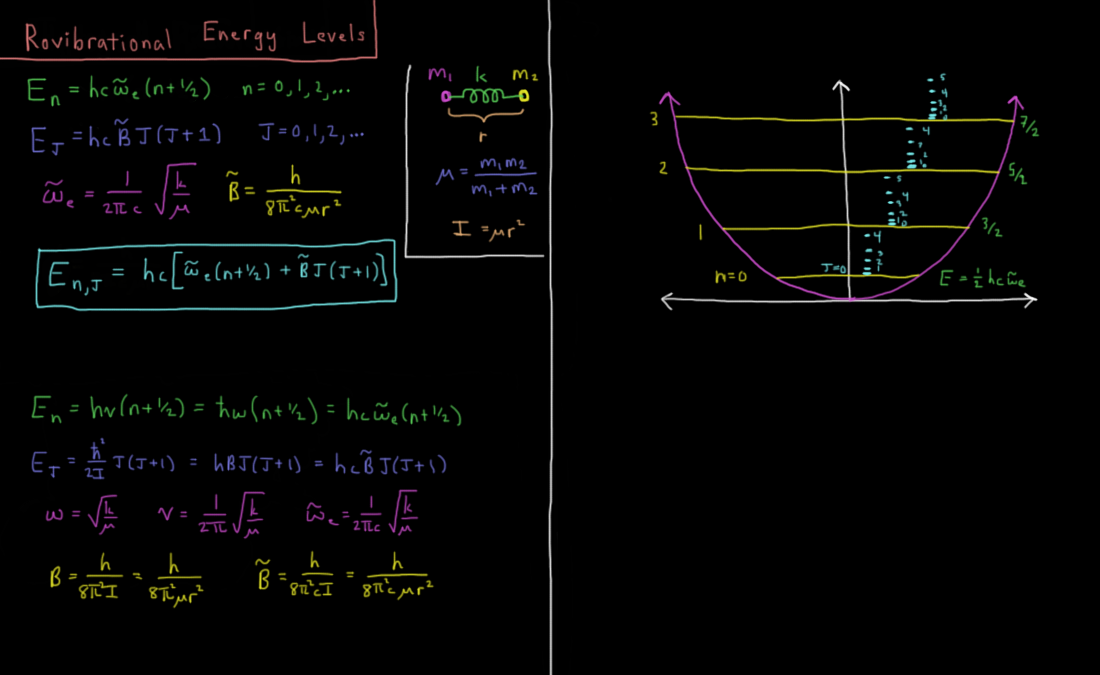 Rovibrational Energy Levels
Eₙ = hcω̃ₑ(n+1/2)   n = 0,1,2,...
E_J = hcB̃J(J+1)   J = 0,1,2,...
ω̃ₑ = 1/(2πc) √(k/μ)   B̃ = h/(8π²cμr²)
E_{n,J} = hc[ω̃ₑ(n+1/2) + B̃J(J+1)]
m₁ k m₂
r
μ = m₁m₂/(m₁+m₂)
I = μr²
Eₙ = hν(n+1/2) = ħω(n+1/2) = hcω̃ₑ(n+1/2)
E_J = ħ²/(2I) J(J+1) = hBJ(J+1) = hcB̃J(J+1)
ω = √(k/μ)   ν = 1/(2π) √(k/μ)   ω̃ₑ = 1/(2πc) √(k/μ)
B = h/(8π²I) = h/(8π²μr²)   B̃ = h/(8π²cI) = h/(8π²cμr²)
5
4
3 7/2
4
2 5/2
5
4
1 3/2
4
3
2
1
n=0 J=0 E = ½hcω̃ₑ